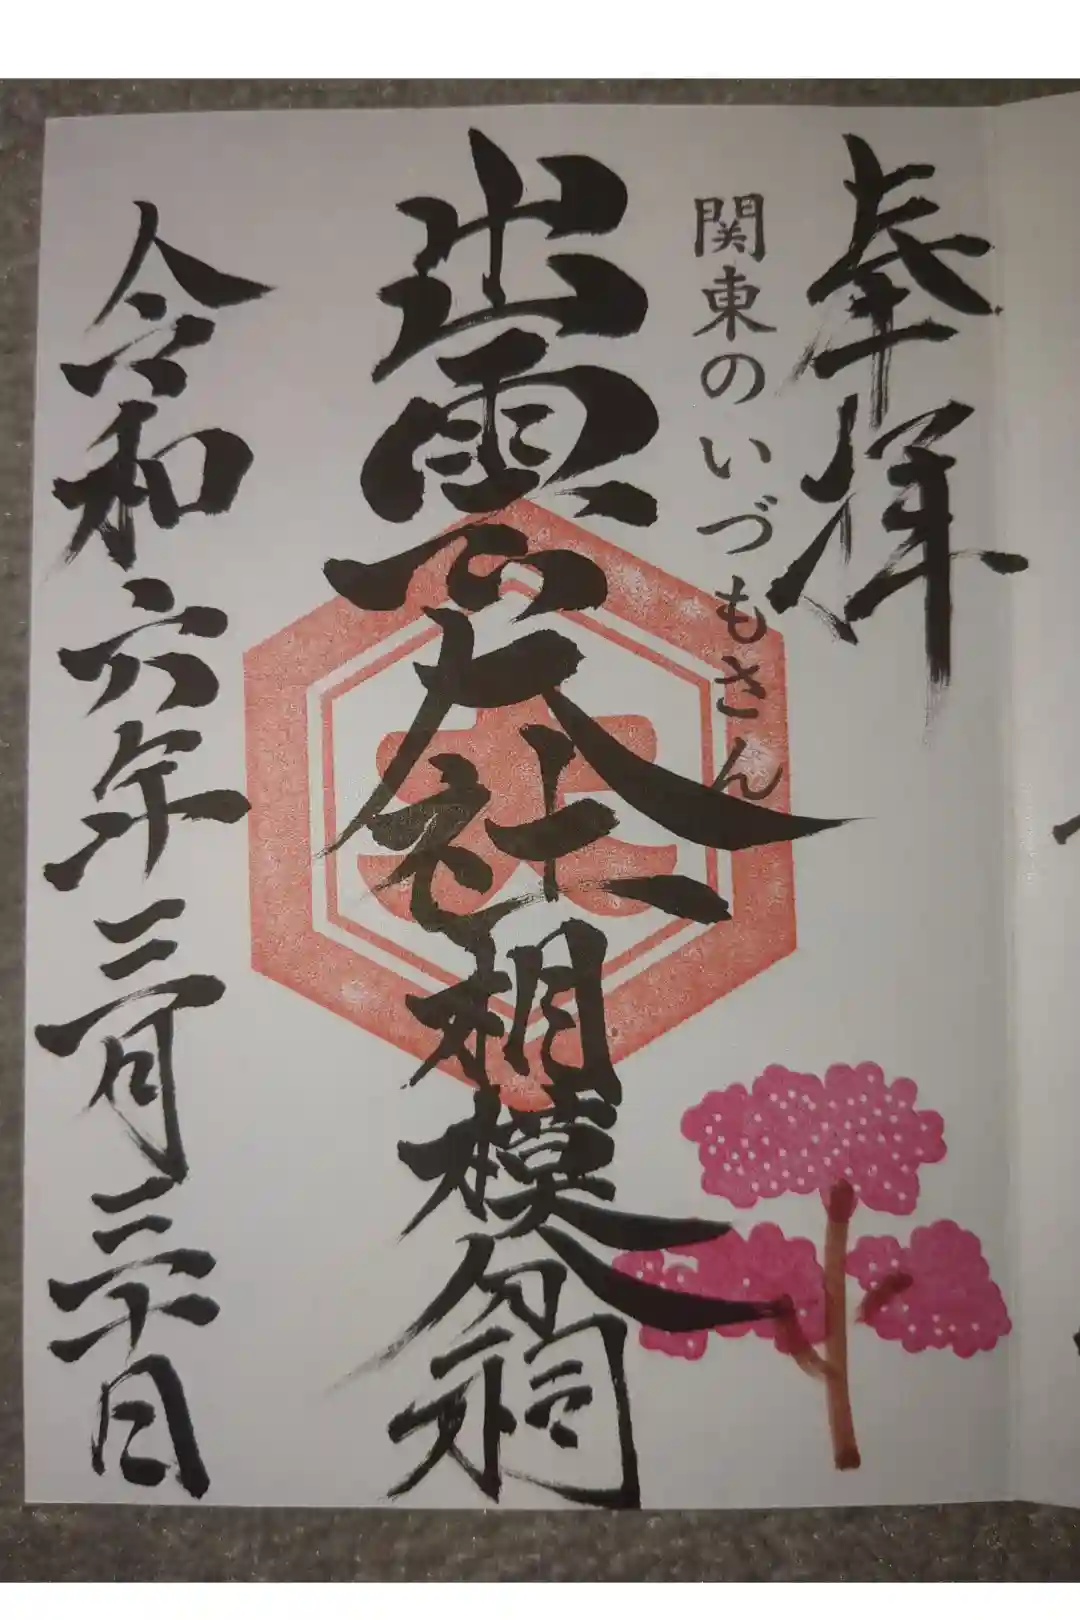 奉拝
関東のいづもさん
出雲大社相模分祠
大
令和六年三月三十日